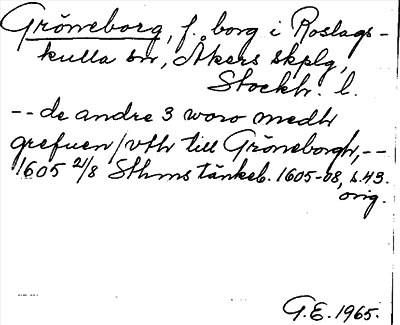 Gröneborg, f. borg i Roslags-
kulla sn, Åkers skplg,
Stockh. l.
-- de andre 3 woro medh
grefuen / vthr till Gröneborgh, --
1605 2/8 Sthms tänkeb. 1605-08, s. 43.
orig.
G.E. 1965.